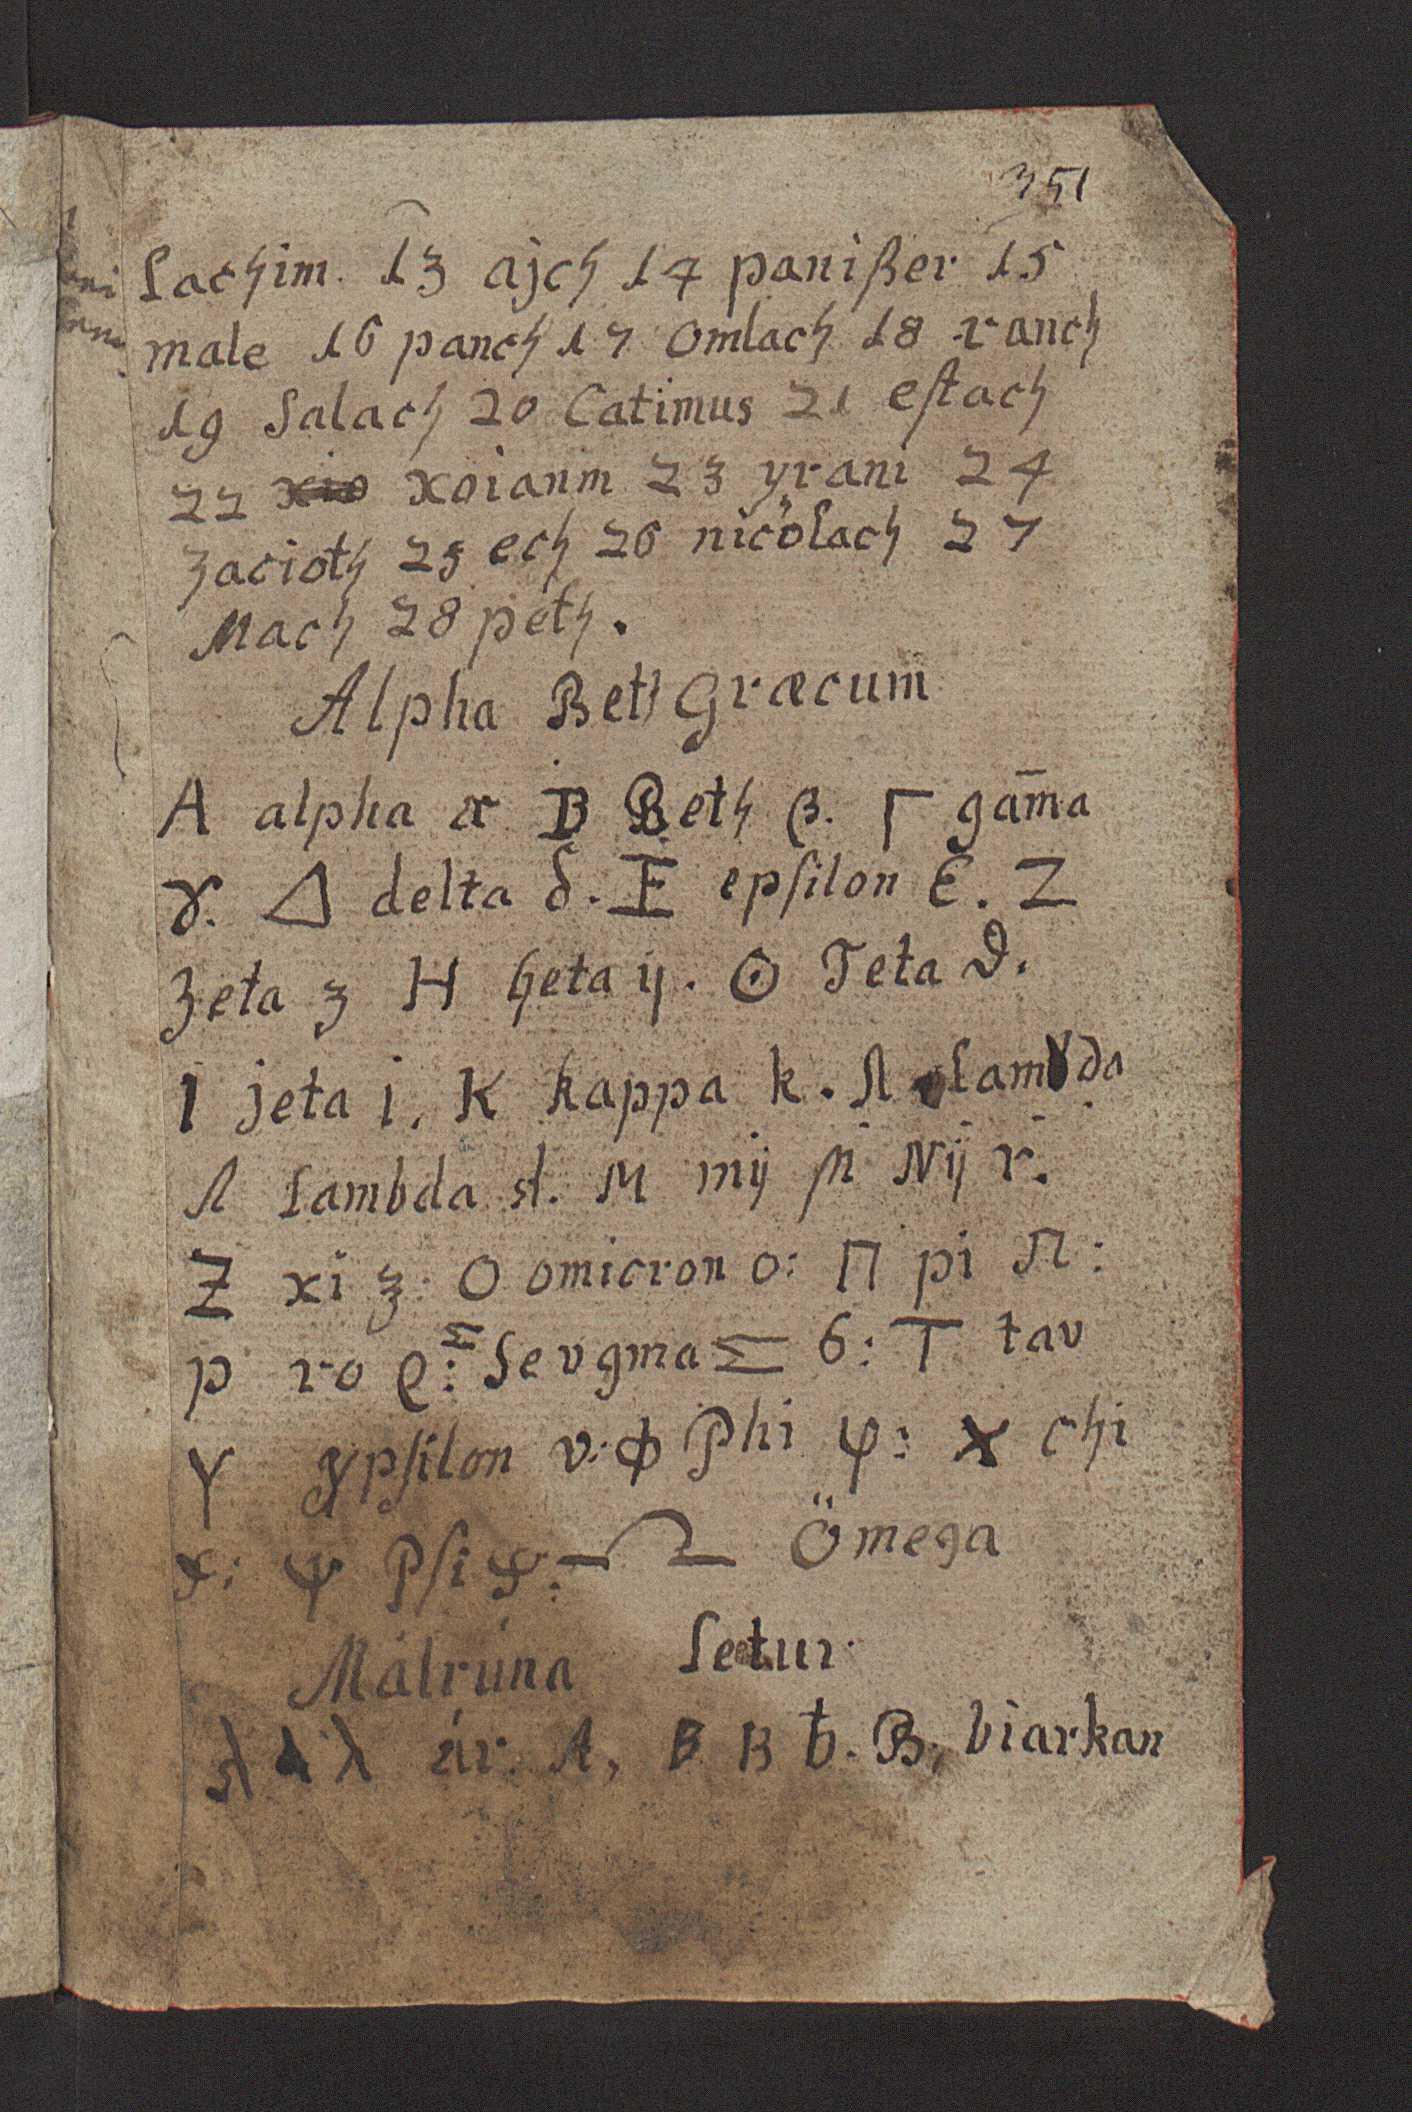 351
Lachim. 13 ajch 14 panißer 15
male 16 panch 17 omlach 18 ranch
19 Salach 20 Catimus 21 eſtach
22 xio xoianm 23 yrani 24
zacioth 25 ech 26 nicölach 27
Mach 28 peth.
Alpha Beth Græcum
A alpha α B Beth β. Γ gam̄a
γ. Δ delta δ. E epſilon Є. Z
Zeta z H heta ij. Θ Teta ϑ.
I jeta i. K kappa k. Λ Lambda
Λ Lambda λ. M mij M Nij v.
Z xi ʒ. O omicron o: Π pi π:
P ro ϱ: Σ Sevgma Σ 6: T tav
Y ypſilon v: Φ Phi φ: X chi
χ: Ψ Pſi ψ: Ω Ömega
Málrúna Letur
ár. A, B B b. B, biarkan